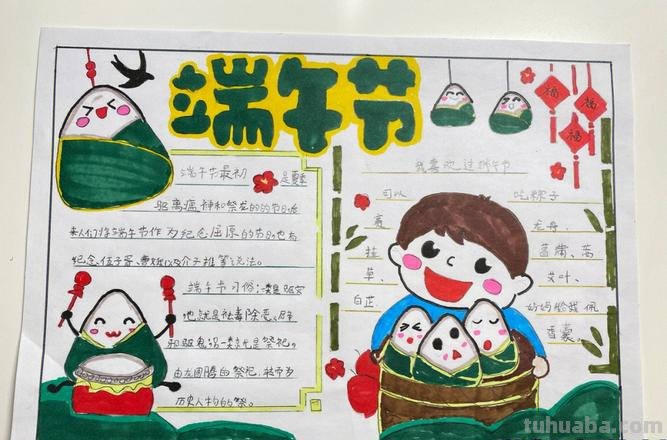 端午节
福
福
福
端午节最初 是夏季
驱离瘟神和祭龙的的节日,后
来人们将端午节作为纪念屈原的节日,也有
纪念伍子胥、曹娥以及介子推等说法。
端午节习俗:
也就是祛毒除恶,
和驱鬼
由龙图腾的祭祀,
历史人物的祭。
我喜欢过端午节
可以 吃粽子
赛 龙舟、
挂 菖蒲、蒿
草、 艾叶、
白芷 妈妈给我佩
香囊。
tuhuaba.com